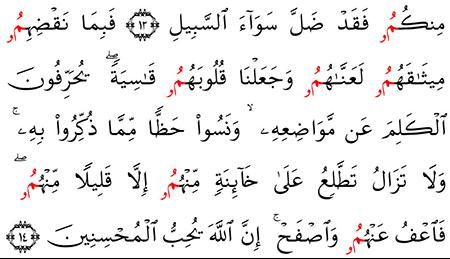 مِنكُمُۥ فَقَدۡ ضَلَّ سَوَآءَ اَ۬لسَّبِيلِ ١٣ فَبِمَا نَقۡضِهِمُۥ
مِيثَٰقَهُمُۥ لَعَنَّٰهُمُۥ وَجَعَلۡنَا قُلُوبَهُمُۥ قَٰسِيَةٗۖ يُحَرِّفُونَ
اَ۬لۡكَلِمَ عَن مَّوَاضِعِهِۦ ۙ وَنَسُواْ حَظّٗا مِّمَّا ذُكِّرُواْ بِهِۦ ۚ
وَلَا تَزَالُ تَطَّلِعُ عَلَىٰ خَآئِنَةٖ مِّنۡهُمُۥ إِلَّا قَلِيلٗا مِّنۡهُمُۥ ۖ
فَاَعۡفُ عَنۡهُمُۥ وَاَصۡفَحۡ ۚ إِنَّ اَ۬للَّهَ يُحِبُّ اُ۬لۡمُحۡسِنِينَ ١٤